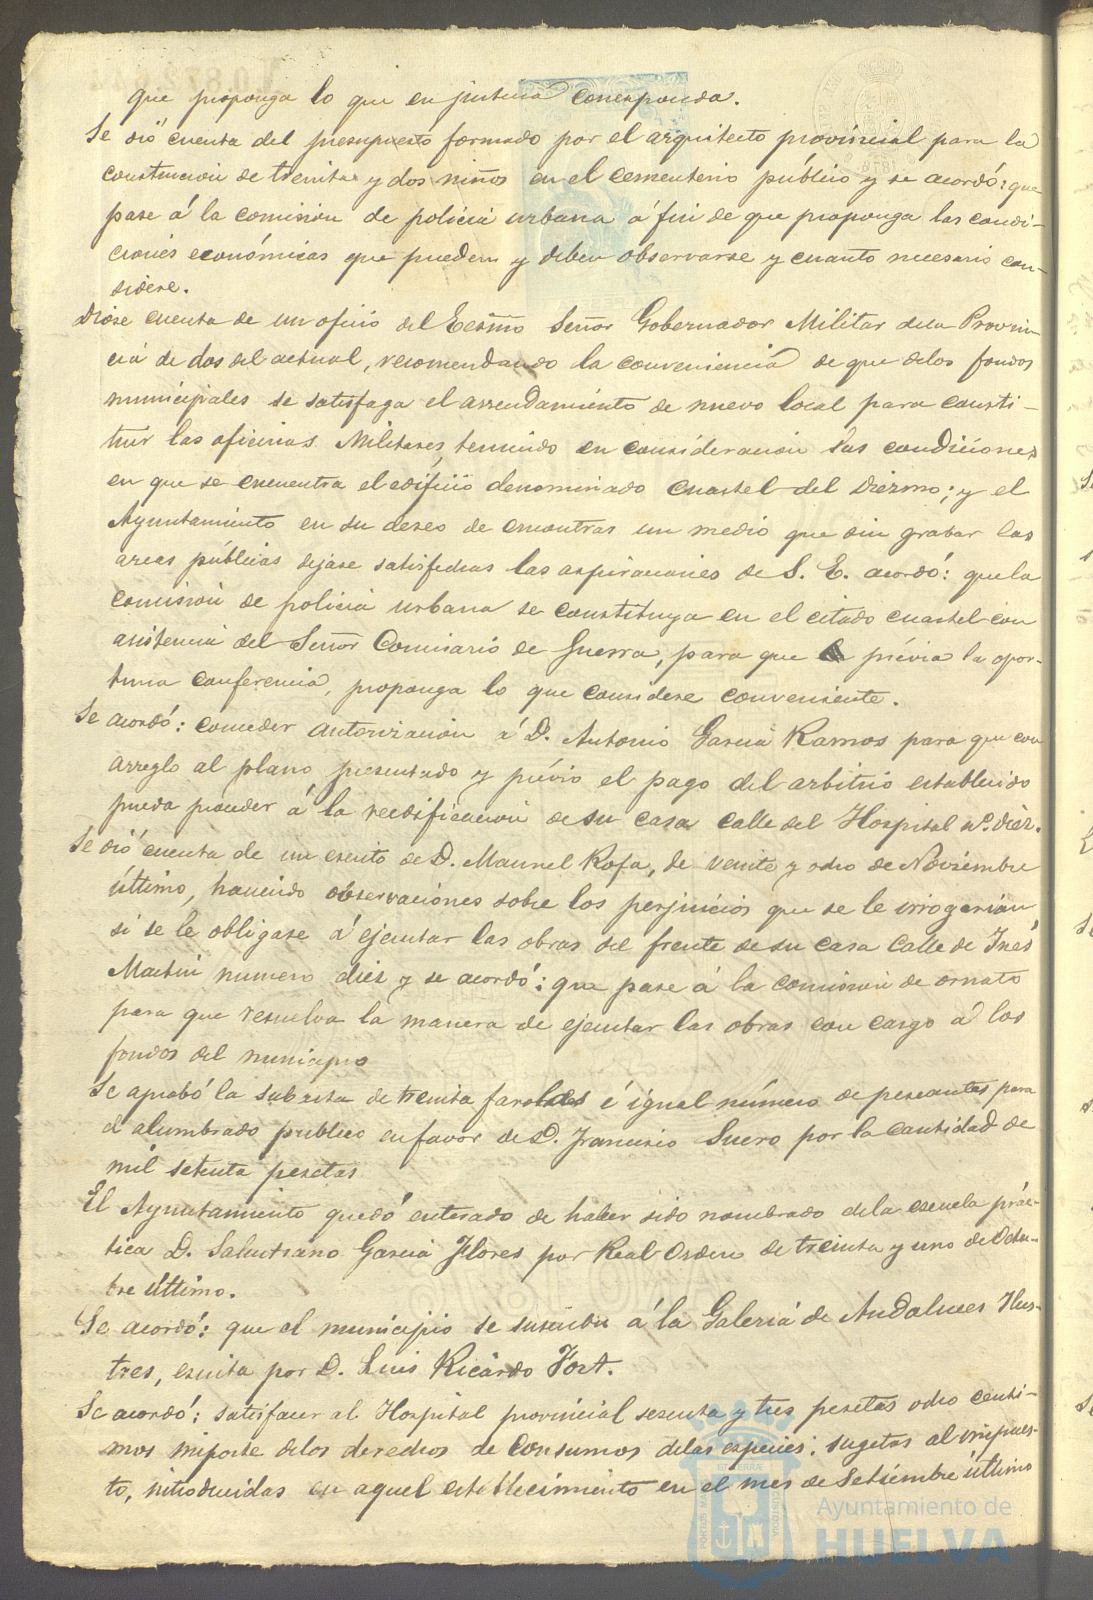 que proponga lo que en justicia corresponda.
Se dió cuenta del presupuesto formado por el arquitecto provincial para la
construcion de treinta y dos niños en el cementerio público y se acordó: que
pase á la comision de policia urbana á fin de que proponga las condi-
ciones económicas que pueden y deben observarse y cuanto necesario con-
sidere.
Diose cuenta de un oficio del Ecsmo Señor Gobernador Militar dela Provin-
cia de dos del actual, recomendando la conveniencia de que delos fondos
municipales se satisfaga el arrendamiento de nuevo local para consti-
tuir las oficinas Militares, teniendo en consideracion las condiciones
en que se encuentra el edificio denominado cuartel del Diezmo; y el
Ayuntamiento en su deseo de encontrar un medio que sin grabar las
arcas públicas dejase satisfechas las aspiraciones de S. E. acordó: que la
comision de policia urbana se constituya en el citado cuartel con
asistencia del Señor Comisario de Guerra, para que prévia la opor-
tuna conferencia, proponga lo que considere conveniente.
Se acordó: conceder autorizacion á D. Antonio Garcia Ramos para que con
arreglo al plano presentado y prévio el pago del arbitrio establecido
pueda proceder á la reedificacion de su casa calle del Hospital nº. diez.
Se dió cuenta de un escrito de D. Manuel Rofa, de veinte y ocho de Noviembre
último, haciendo observaciones sobre los perjuicios que se le irrogarian
si se le obligase á ejecutar las obras del frente de su casa calle de Ines
Martin numero diez y se acordó: que pase á la comision de ornato
para que resuelva la manera de ejecutar las obras con cargo á los
fondos del municipio
Se aprobó la subasta de treinta faroles é igual número de pescantes para
el alumbrado publico en favor de D. Francisco Suero por la cantidad de
mil setenta pesetas
El Ayuntamiento quedó enterado de haber sido nombrado dela escuela prác-
tica D. Salustiano Garcia Flores por Real Orden de treinta y uno de Octu-
bre último.
Se acordó: que el municipio se suscriba á la Galeria de Andaluces Ilus-
tres, escrita por D. Luis Ricardo Fort.
Se acordó: satisfacer al Hospital provincial sesenta y tres pesetas ocho centi-
mos importe delos derechos de consumos delas especies: sugetas al impues-
to, introducidas en aquel establecimiento en el mes de Setiembre último
Ayuntamiento de
HUELVA